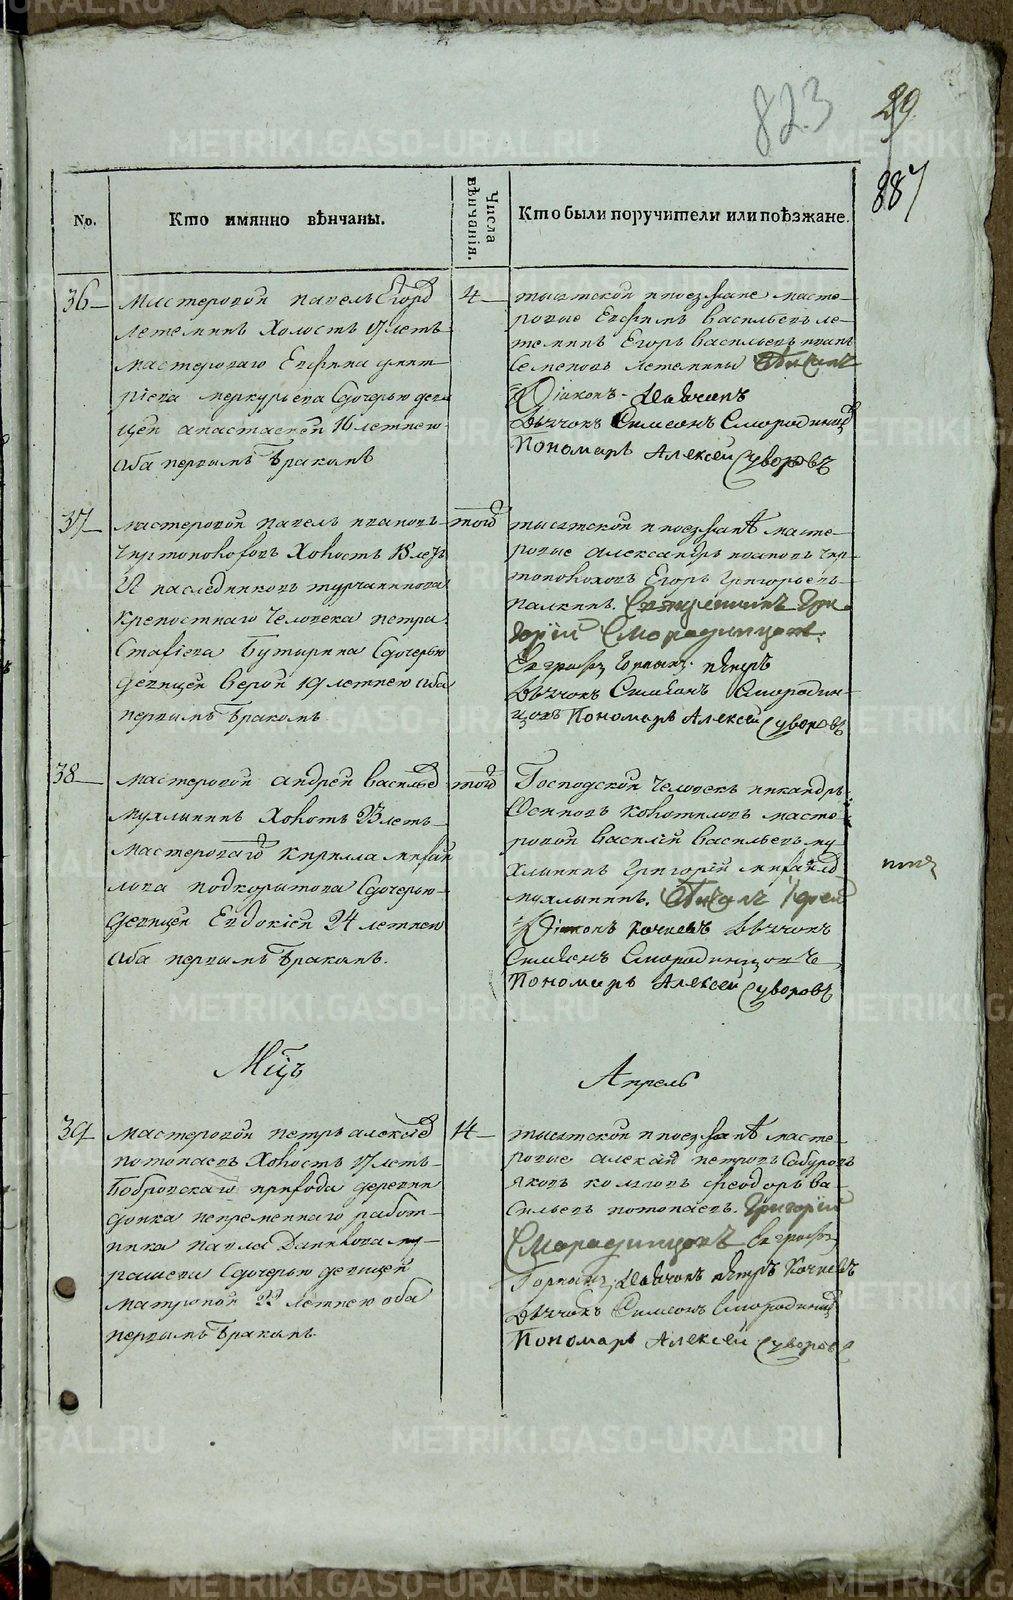 823
29
887
No.
Кто имянно вѣнчаны.
Числа вѣнчанія.
Кто были поручители или поѣзжане.
36
мастеровой павелъ Егоровъ
летеминъ холостъ 17 летъ
мастероваго Ефима дмит-
ріева меркурьева Сдочерью деви
цей анастасіей 16 летнею
оба первымъ бракомъ
4
тысятской ипоезжане масте-
ровые Ефимъ васильевъ ле-
теминъ Егоръ васильевъ иванъ
Семеновъ летемины
Діаконъ
Дьячокъ Симеонъ Смородинцовъ
Пономарь Алексей Суворовъ
37
мастеровой павелъ ивановъ
чертополоховъ холостъ 18 летъ
И наследниковъ турчанинова
крепостнаго человека петра
Стафіева Бутырина Сдочерью
девицей верой 19 летнею оба
первымъ бракомъ
той
тысятской ипоезжанѣ масте-
ровые александръ ивановъ чер-
тополоховъ Егоръ григорьевъ
палкинъ. Священникъ Гри-
горій Смородинцовъ.
Дьячокъ Симеонъ Смородин-
цовъ Пономарь Алексей Суворовъ
38
мастеровой андрей васильев
мухлынинъ холостъ 23 летъ
мастероваго кирилла михай
лова подкорытова Сдочерью
девицей Евдокіей 24 летнею
оба первымъ бракомъ.
той
Господской человекъ никандръ
Осиповъ колотиловъ масте-
ровой василій васильевъ му-
хлынинъ григорій михайлов
мухлынинъ.
Діаконъ Кочневъ Дьячокъ
Симеонъ Смородинцовъ
Пономарь Алексей Суворовъ
Мцъ
Апрель
39
мастеровой петръ алексеев
потопаевъ холостъ 17 летъ
Бобровскаго прихода деревни
непременнаго работ-
ника павла Данилова му-
рашева Сдочерью девицей
матроной 22 летнею оба
первымъ бракомъ
14
тысятской ипоезжанѣ масте-
ровые алексей петровъ Сабуровъ
яковъ феодоръ ва-
сильевъ потопаевъ. Григорій
Смородинцовъ
петръ Кочневъ
Дьячокъ Симеонъ Смородинцовъ
Пономарь Алексей Суворовъ
METRIKI.GASO-URAL.RU